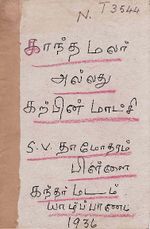 N. T 3544
காந்த மலர்
அல்லது
கற்பின் மாட்சி
S.V. தாமோதரம்
பிள்ளை
கந்தர் மடம்
யாழ்ப்பாணம்
1936